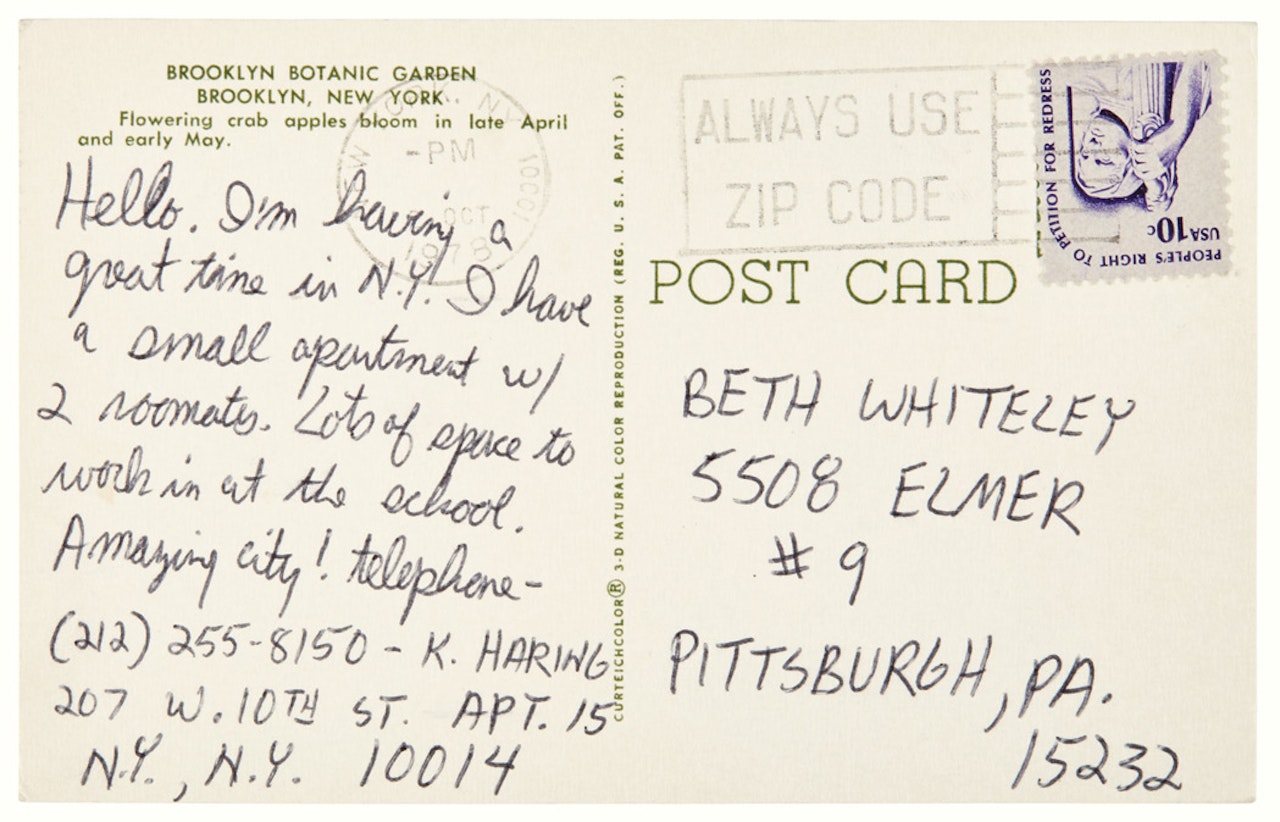 BROOKLYN BOTANIC GARDEN
BROOKLYN, NEW YORK
Flowering crab apples bloom in late April
and early May.
Hello. I'm having a
great time in N.Y! I have
a small apartment w/
2 roomates. Lots of space to
work in at the school.
Amazing city! telephone-
(212) 255-8150 - K. HARING
207 W. 10TH ST. APT. 15
N.Y., N.Y. 10014
-PM
OCT
1978
10001
CURTEICHCOLOR® 3-D NATURAL COLOR REPRODUCTION (REG. U. S. A. PAT. OFF.)
ALWAYS USE
ZIP CODE
PEOPLE'S RIGHT TO PETITION FOR REDRESS
USA 10c
POST CARD
BETH WHITELEY
5508 ELMER
# 9
PITTSBURGH, PA.
15232